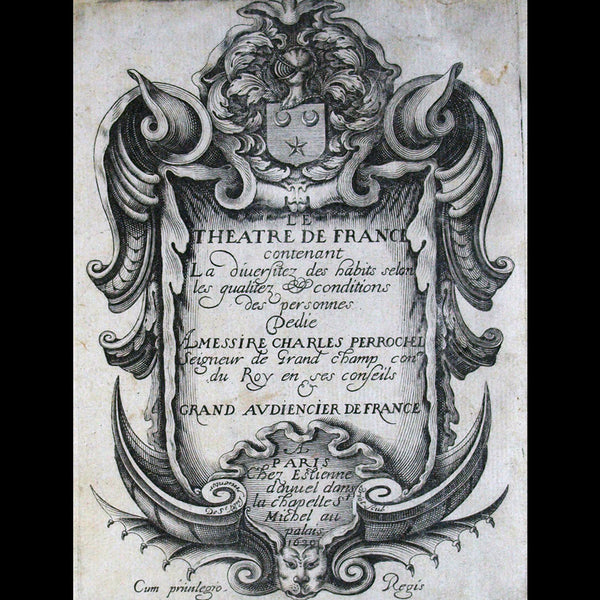 LE
THEATRE DE FRANCE
contenant
La diuersitez des habits selon
les qualitez & conditions
des personnes
Dedie
A MESSIRE CHARLES PERROCHEL
Seigneur de Grand champ conᵉʳ
du Roy en ses conseils
&
GRAND AVDIENCIER DE FRANCE
A
PARIS
Chez Estienne
dauuel dans
la chapelle Sᵗ
Michel au
palais
1629
Cum priuilegio Regis